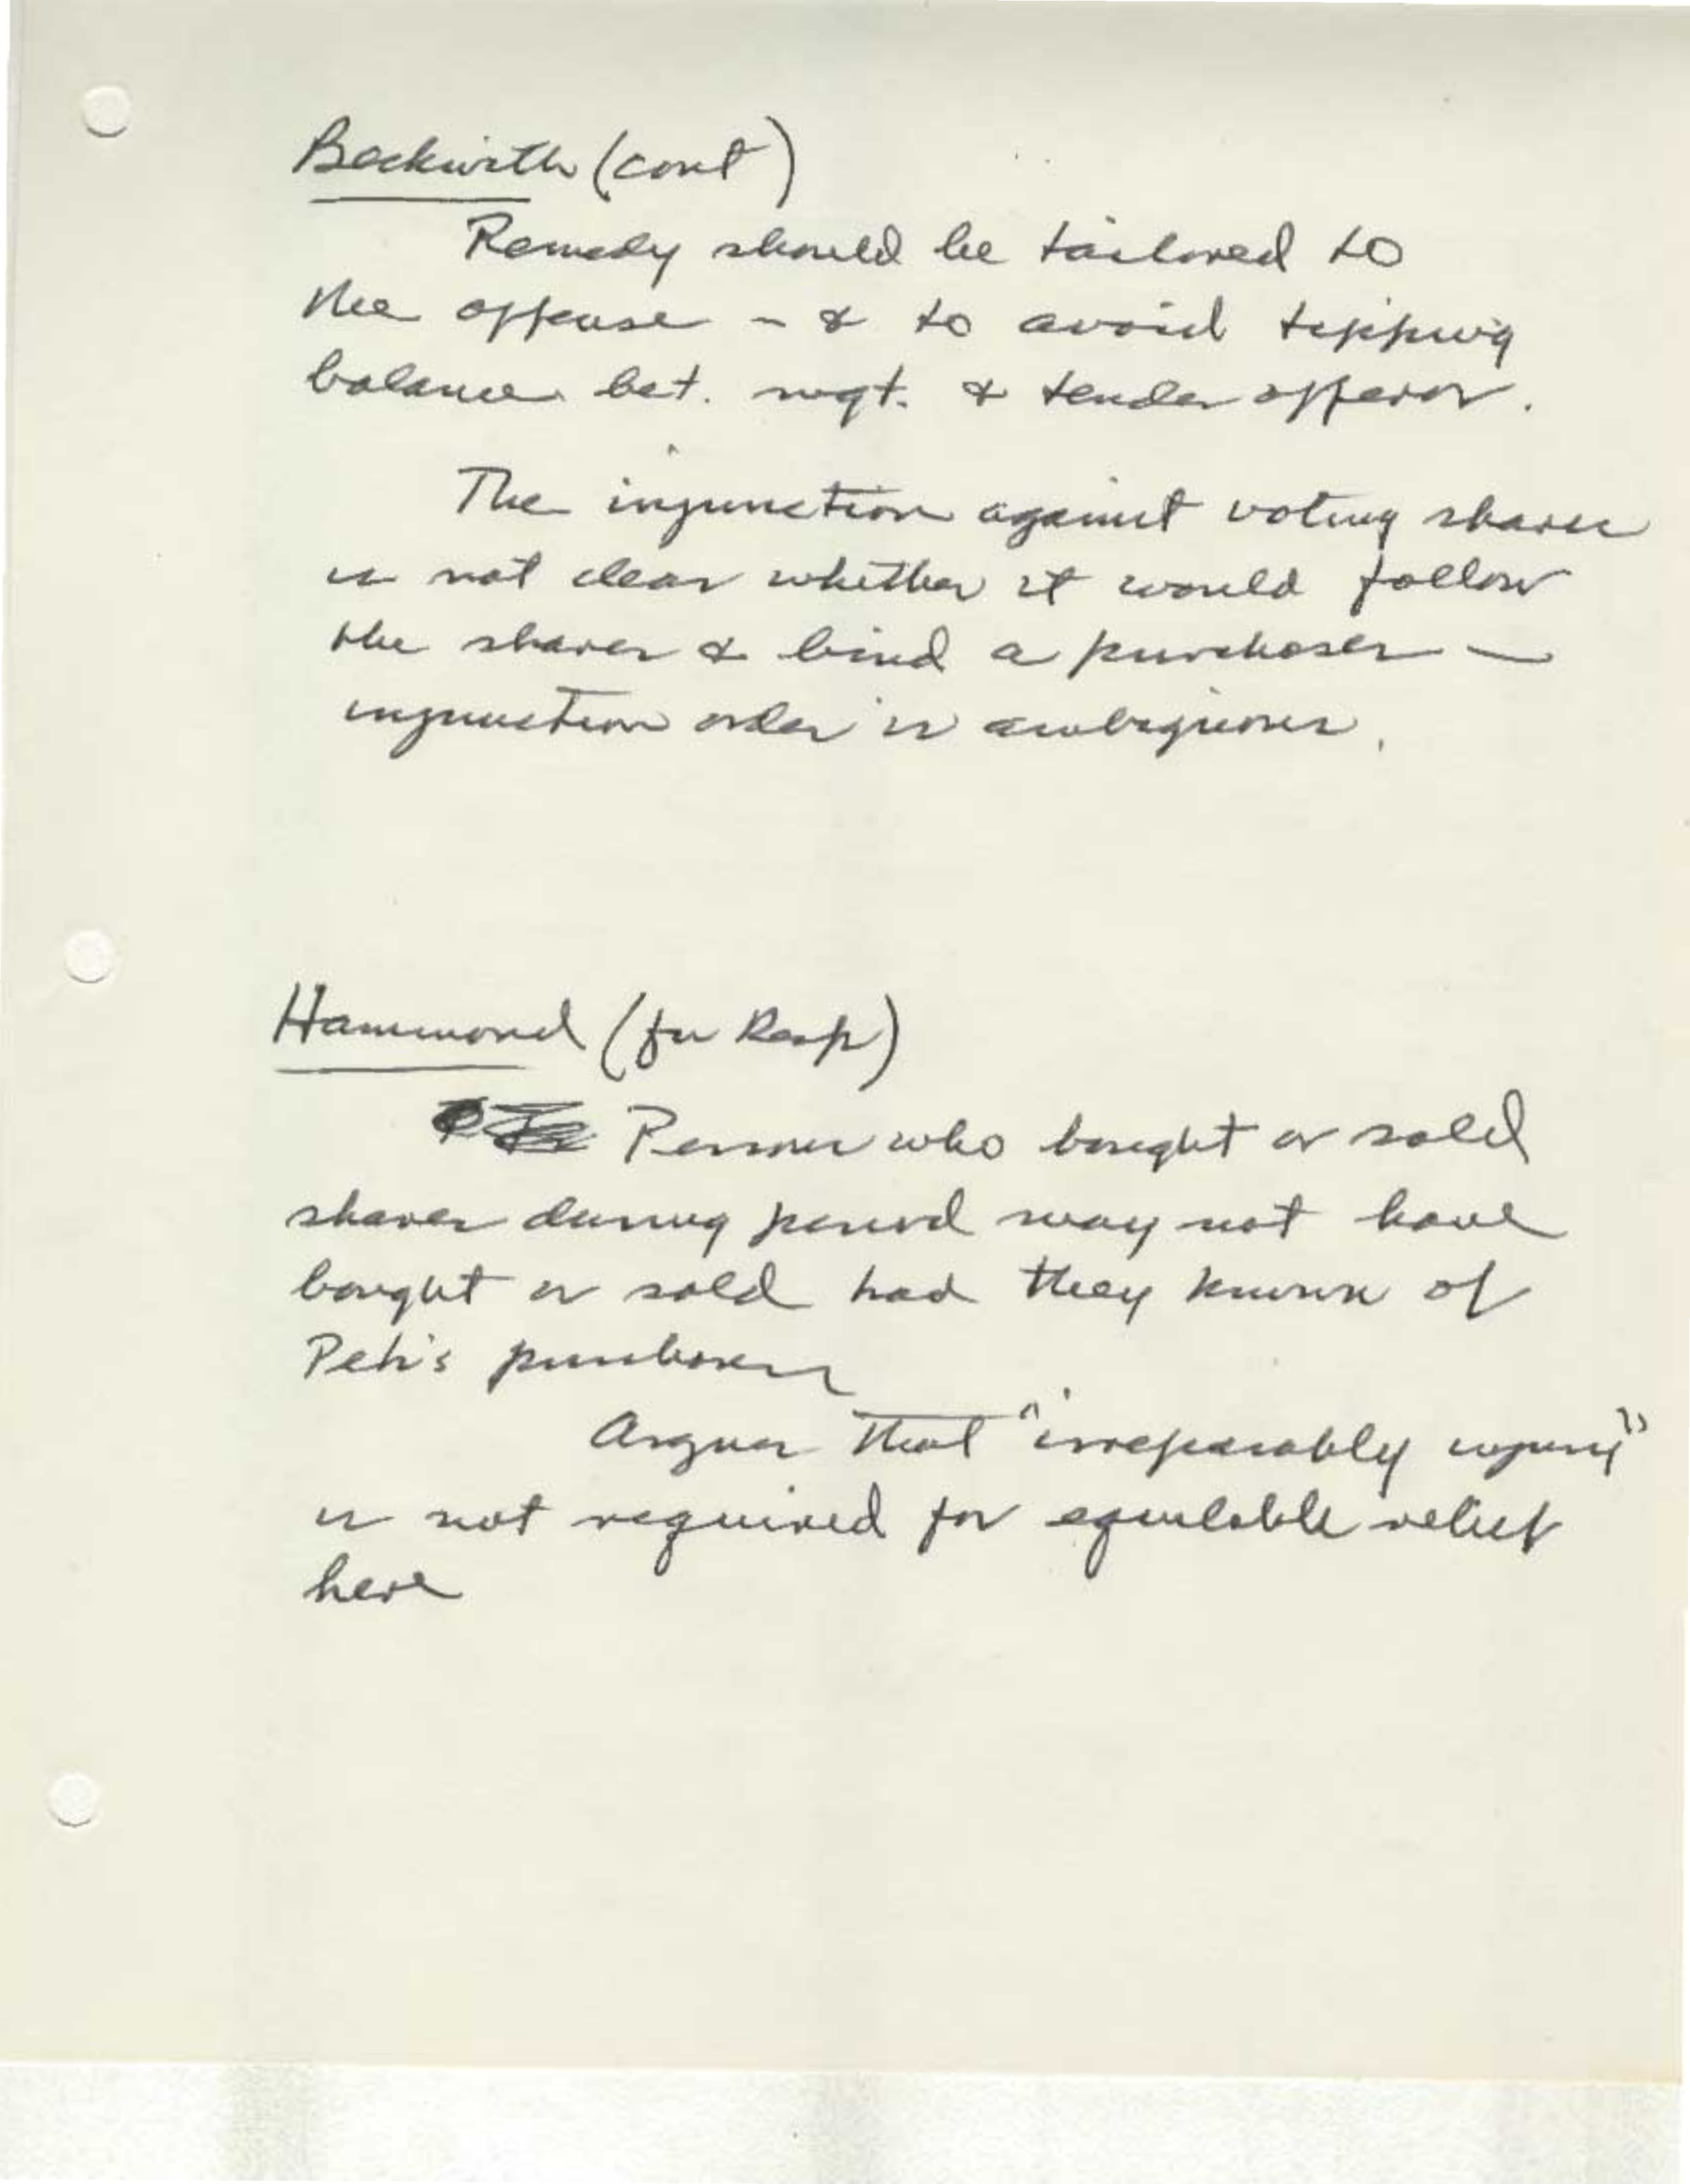 Beckwith (cont)
Remedy should be tailored to
the offense - & to avoid tipping
balance bet. mgt. & tender offeror.
The injunction against voting shares
is not clear whether it would follow
the shares & bind a purchaser —
injunction order is ambiguous.
Hammond (for Resp)
Persons who bought or sold
shares during period may not have
bought or sold had they known of
Petr's purchases
Argues that "irreparably injury"
is not required for equitable relief
here